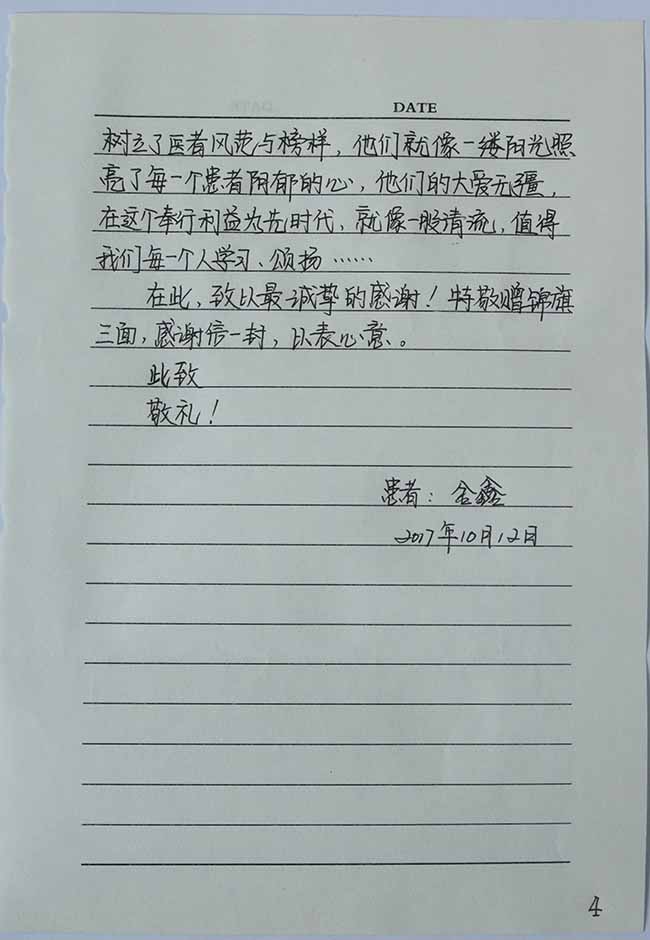 DATE
树立了医者风范与榜样，他们就像一缕阳光照
亮了每一个患者阴郁的心，他们的大爱无疆，
在这个奉行利益为先时代，就像一股清流，值得
我们每一个人学习、颂扬……
在此，致以最诚挚的感谢！特敬赠锦旗
三面，感谢信一封，以表心意。
此致
敬礼！
患者：金鑫
2017年10月12日
4